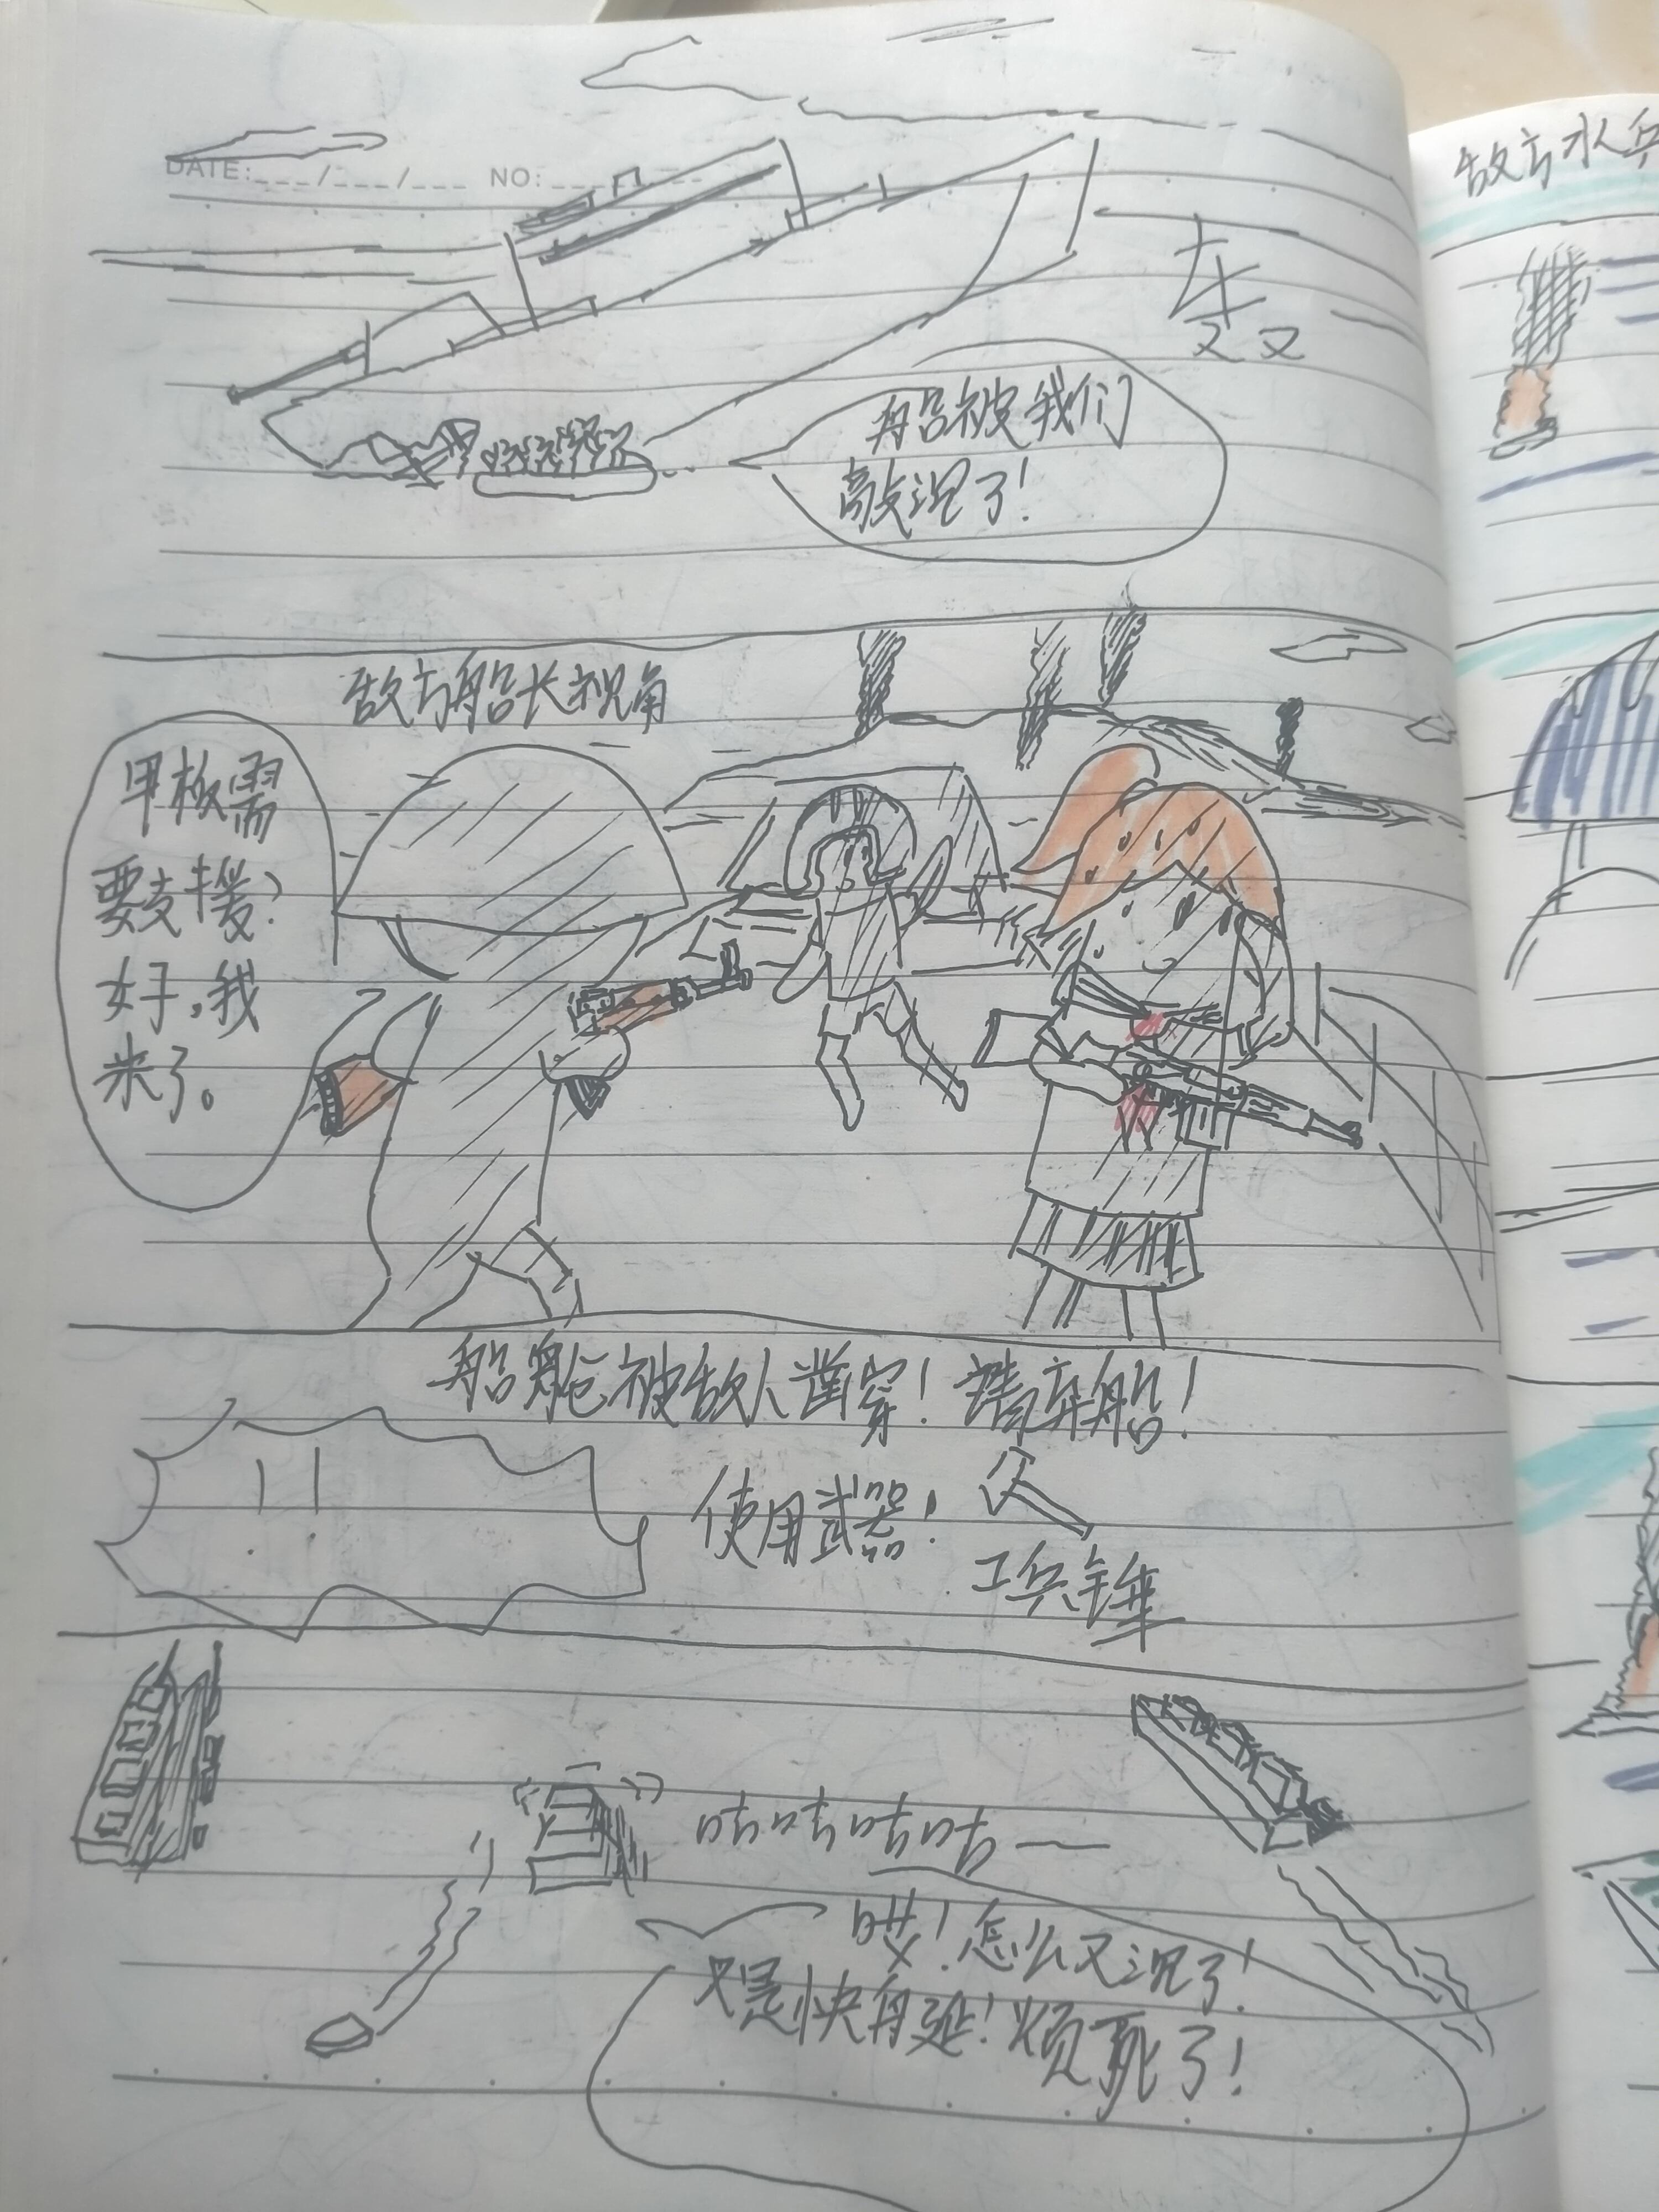 DATE:___/___/___ NO:______
船被我们
敲沉了!
敌方船长视角
甲板需
要支援?
好,我
来了。
船舱被敌人凿穿!请弃船!
!!
使用武器:
工兵锤
咕咕咕咕—
哎!怎么又沉了!
又是快舟艇!烦死了!
敌方水兵